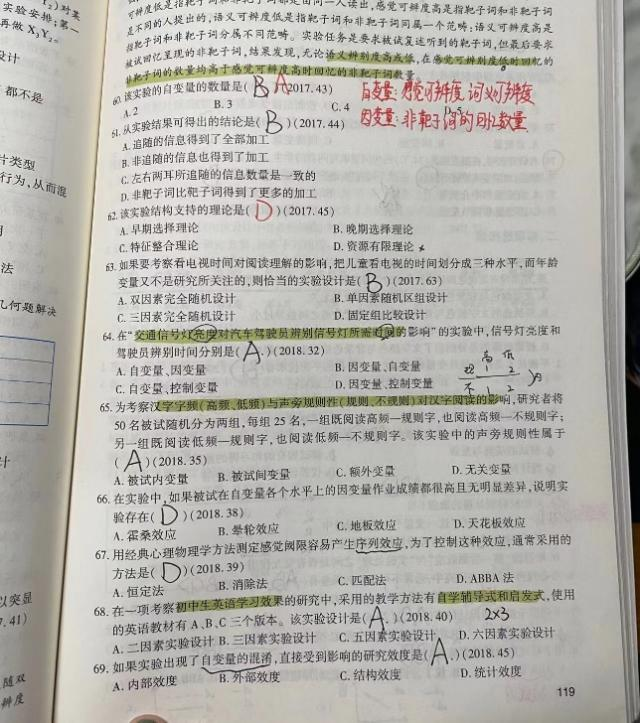 是不同的人提出的,语义可辨度低是指靶子词和非靶子词同属一个范畴;语义可辨度高是
指靶子词和非靶子词分属不同范畴。实验任务是要求被试复述听到的靶子词,但最后要求
被试回忆呈现的非靶子词,结果发现,无论语义辨别度高或低,在感觉可辨别度低时回忆的
非靶子词的数量均高于感觉可辨度高时回忆的非靶子词数量。
60.该实验的自变量的数量是( B A 2017.43)
A.2 B.3 C.4
自变量:感觉可辨度 词义可辨度
因变量:非靶子词的回忆数量
61.从实验结果可得出的结论是( B )(2017.44)
A.追随的信息得到了全部加工
B.非追随的信息也得到了加工
C.左右两耳所追随的信息数量是一致的
D.非靶子词比靶子词得到了更多的加工
62.该实验结构支持的理论是( D )(2017.45)
A.早期选择理论 B.晚期选择理论
C.特征整合理论 D.资源有限理论
63.如果要考察看电视时间对阅读理解的影响,把儿童看电视的时间划分成三种水平,而年龄
变量又不是研究所关注的,则恰当的实验设计是( B )(2017.63)
A.双因素完全随机设计 B.单因素随机区组设计
C.三因素完全随机设计 D.固定组比较设计
64.在“交通信号灯亮度对汽车驾驶员辨别信号灯所需时间的影响”的实验中,信号灯亮度和
驾驶员辨别时间分别是( A )(2018.32)
A.自变量、因变量 B.因变量、自变量
C.自变量、控制变量 D.因变量、控制变量
高 低
规 1 2
不 1 2
65.为考察汉字字频(高频、低频)与声旁规则性(规则、不规则)对汉字阅读的影响,研究者将
50名被试随机分为两组,每组25名,一组既阅读高频—规则字,也阅读高频—不规则字;
另一组既阅读低频—规则字,也阅读低频—不规则字。该实验中的声旁规则性属于
( A )(2018.35)
A.被试内变量 B.被试间变量 C.额外变量 D.无关变量
66.在实验中,如果被试在自变量各个水平上的因变量作业成绩都很高且无明显差异,说明实
验存在( D )(2018.38)
A.霍桑效应 B.晕轮效应 C.地板效应 D.天花板效应
67.用经典心理物理学方法测定感觉阈限容易产生序列效应,为了控制这种效应,通常采用的
方法是( D )(2018.39)
A.恒定法 B.消除法 C.匹配法 D.ABBA法
68.在一项考察初中生英语学习效果的研究中,采用的教学方法有自学辅导式和启发式,使用
的英语教材有A、B、C三个版本。该实验设计是( A )(2018.40) 2×3
A.二因素实验设计 B.三因素实验设计 C.五因素实验设计 D.六因素实验设计
69.如果实验出现了自变量的混淆,直接受到影响的研究效度是( A )(2018.45)
A.内部效度 B.外部效度 C.结构效度 D.统计效度
119